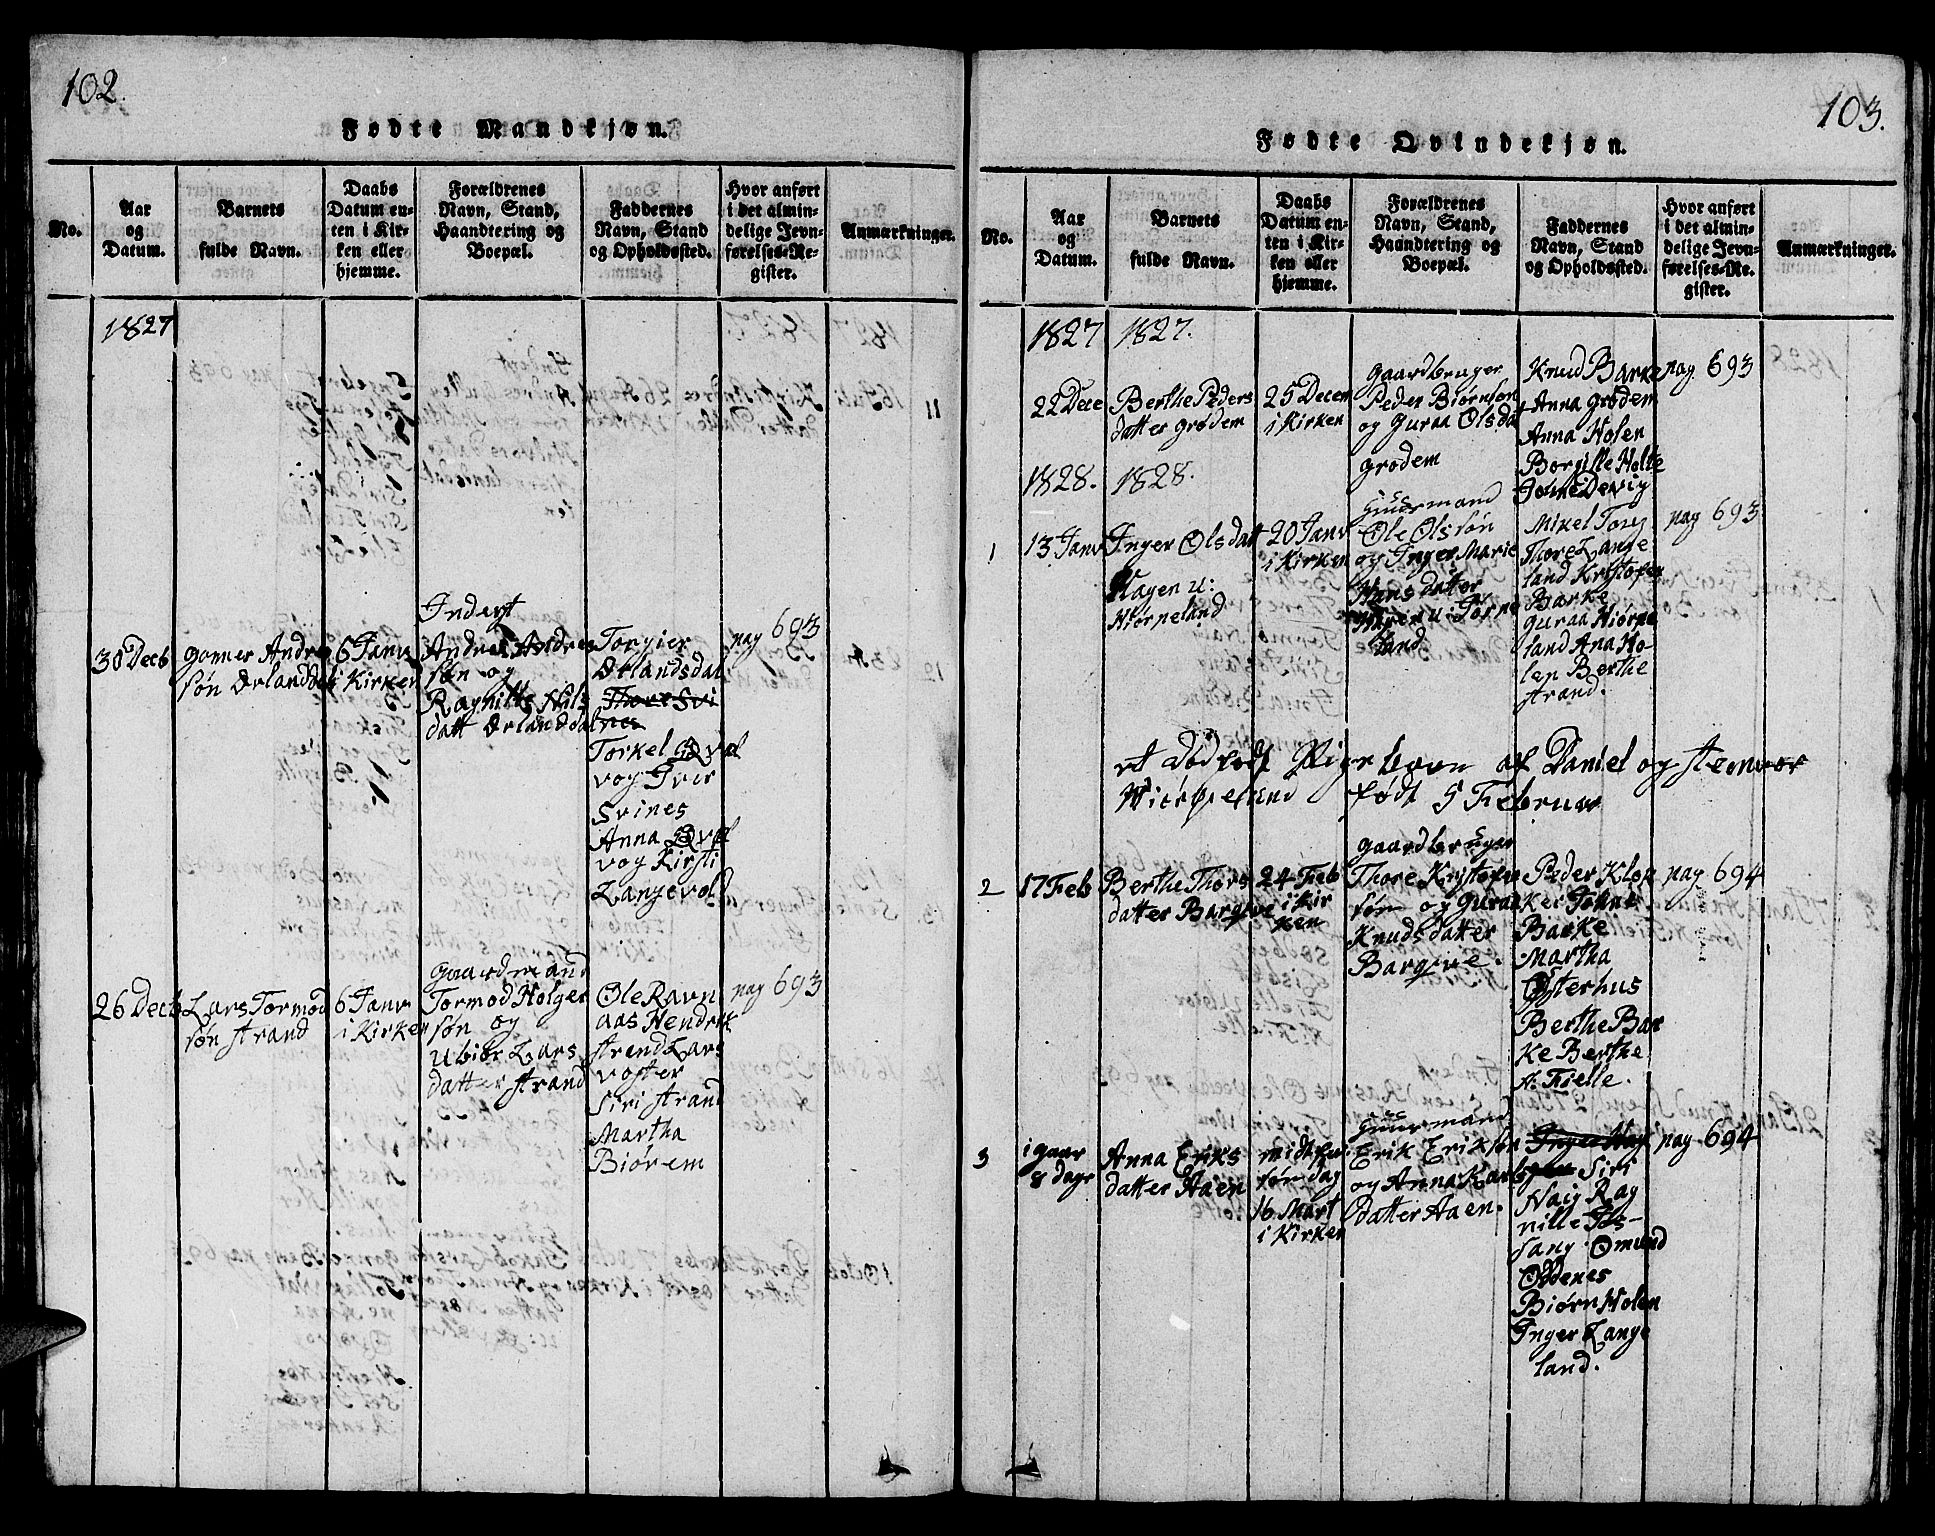 102.
Fødte Mandkjøn.
No.
Aar
og
Datum.
Barnets
fulde Navn.
Daabs
Datum en-
ten i Kir-
ken eller
hjemme.
Forældrenes
Navn, Stand,
Haandtering og
Boepæl.
Faddernes
Navn, Stand
og Opholdssted.
Hvor anført
i det almin-
delige Jevn-
førelses-Re-
gister.
Anmærkninger.
1827
30 Decb
Gomer Andre
søn Ørlandsdal
6 Janv
i Kirken
Inderst
Andres Andres
søn og
Ragnille Nils
datt Ørlanddal
Torgier
Ørlandsdal
Thore Svi
nes
Torkel Qval
vog Iver
Svines
Anna Qval
vog Kirsti
Langevold
pag 693
26 Decb
Lars Tormod
søn Strand
6 Janv
i Kirken
gaardmand
Tormod Holger
søn og
Ubiør Lars
datter Strand
Ole Ravn
aas Hendrik
Strand Lars
Vogter
Siri Strand
Martha
Biørem
pag 693
103.
Fødte Qvindekjøn.
No.
Aar
og
Datum.
Barnets
fulde Navn.
Daabs
Datum en-
ten i Kir-
ken eller
hjemme.
Forældrenes
Navn, Stand,
Haandtering og
Boepæl.
Faddernes
Navn, Stand
og Opholdssted.
Hvor anført
i det almin-
delige Jevn-
førelses-Re-
gister.
Anmærkninger.
1827 1827.
22 Dece
Berthe Peders
datter Grødem
25 Decem
i Kirken
Gaardbruger
Peder Biørnsøn
og Guraa Olsdat
Grødem
Knud Barke
Anna Grødem
Anna Holen
Borgille Holte
pag 693
1828. 1828.
1
13 Janv
Inger Olsdatt
Hagen u:
Hiørpeland
20 Janv
i Kirken
Huusmand
Ole Olssøn
og Inger Marie
Hans datter
Hagen u: Jørpe
land
Mikel Torg
Thore Lange
land Kristofer
Barke
Guraa Hiørpe
land Ana Ho-
len Berthe
Strand.
pag 693
et dødfødt Pigebarn af Daniel og Stenvor
Hiørpeland født 5 Februar
2
17 Feb
Berthe Thors
datter Bargeve
24 Feb
i Kir
ken
Gaardbruger
Thore Kristofer
søn og Guraa
Knuds datter
Bargeve.
Peder Klop
ker
Barke
Martha
Østerhus
Berthe Bar
ke Berthe
N. Fielle.
pag 694
3
i gaar
8 dage
Anna Eriks
datter Aaen
midtfa
søn dag
16 Mart
i Kirken
Huusmand
Erik Eriksøn
og Anna Karls
datter Aaen.
Siri
Haig Rag
nille Tøs-
sang. Omund
Oddenes
Biørn Holen
Inger Lange
land.
pag 694